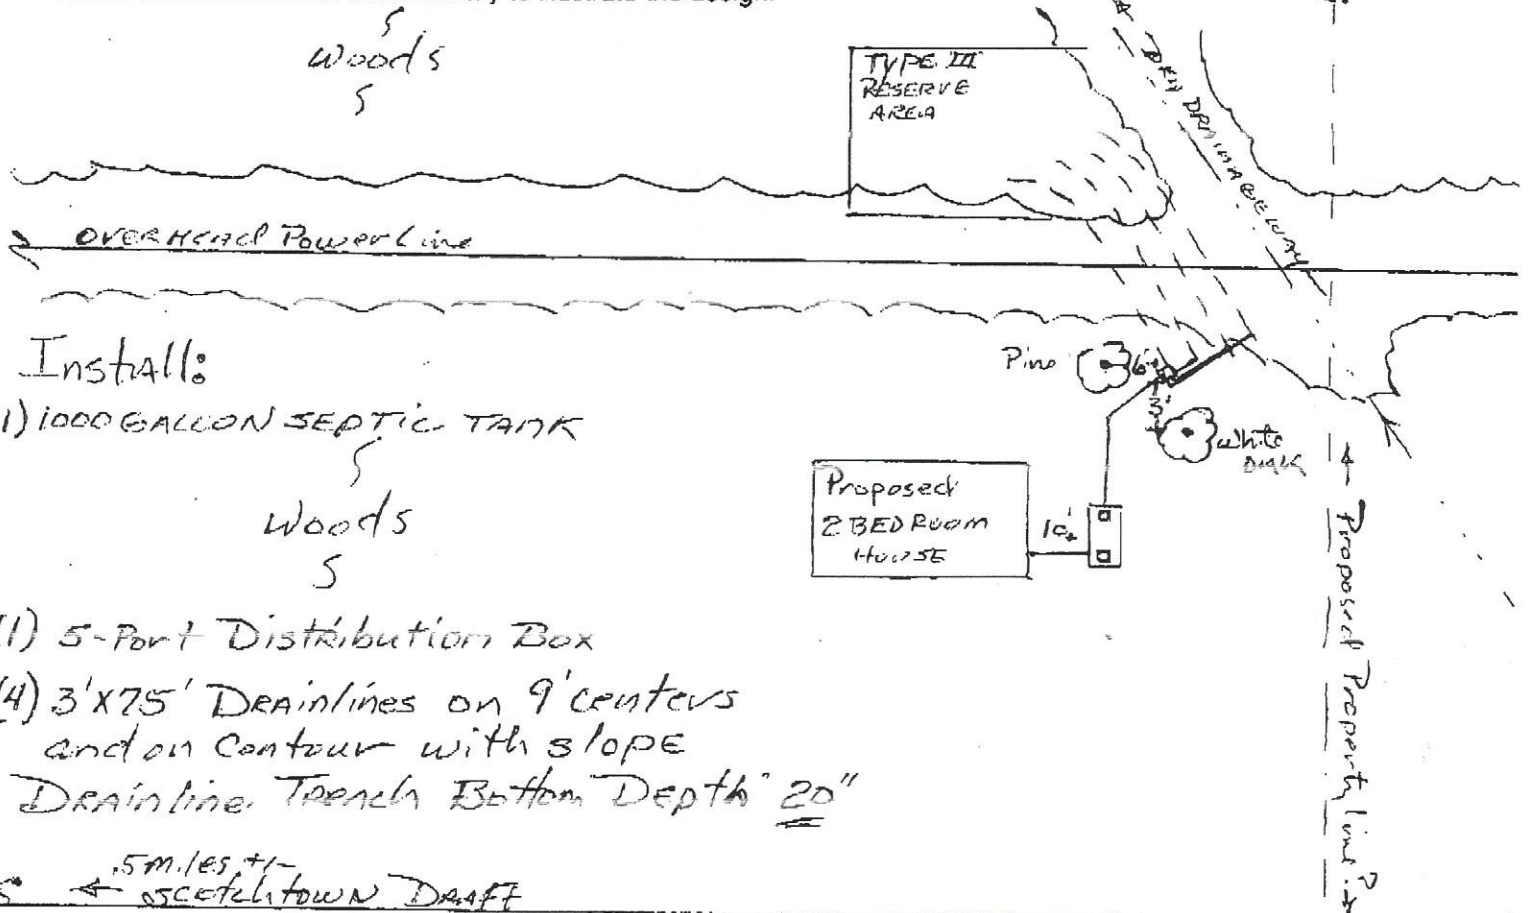 Woods
TYPE III
RESERVE
AREA
DRY DRAINAGEWAY
OVERHEAD PowerLine
Install:
Pine
6'
3'
White
OAK
1) 1000 GALLON SEPTIC TANK
Woods
Proposed
2 BEDROOM
HOUSE
10'
Proposed Property line?
(1) 5-Port Distribution Box
(4) 3'X75' DRAinlines on 9' centers
and on Contour with slope
DRAinline Trench Bottom Depth 20"
.5 miles +/-
SCOTCHTOWN DRAFT